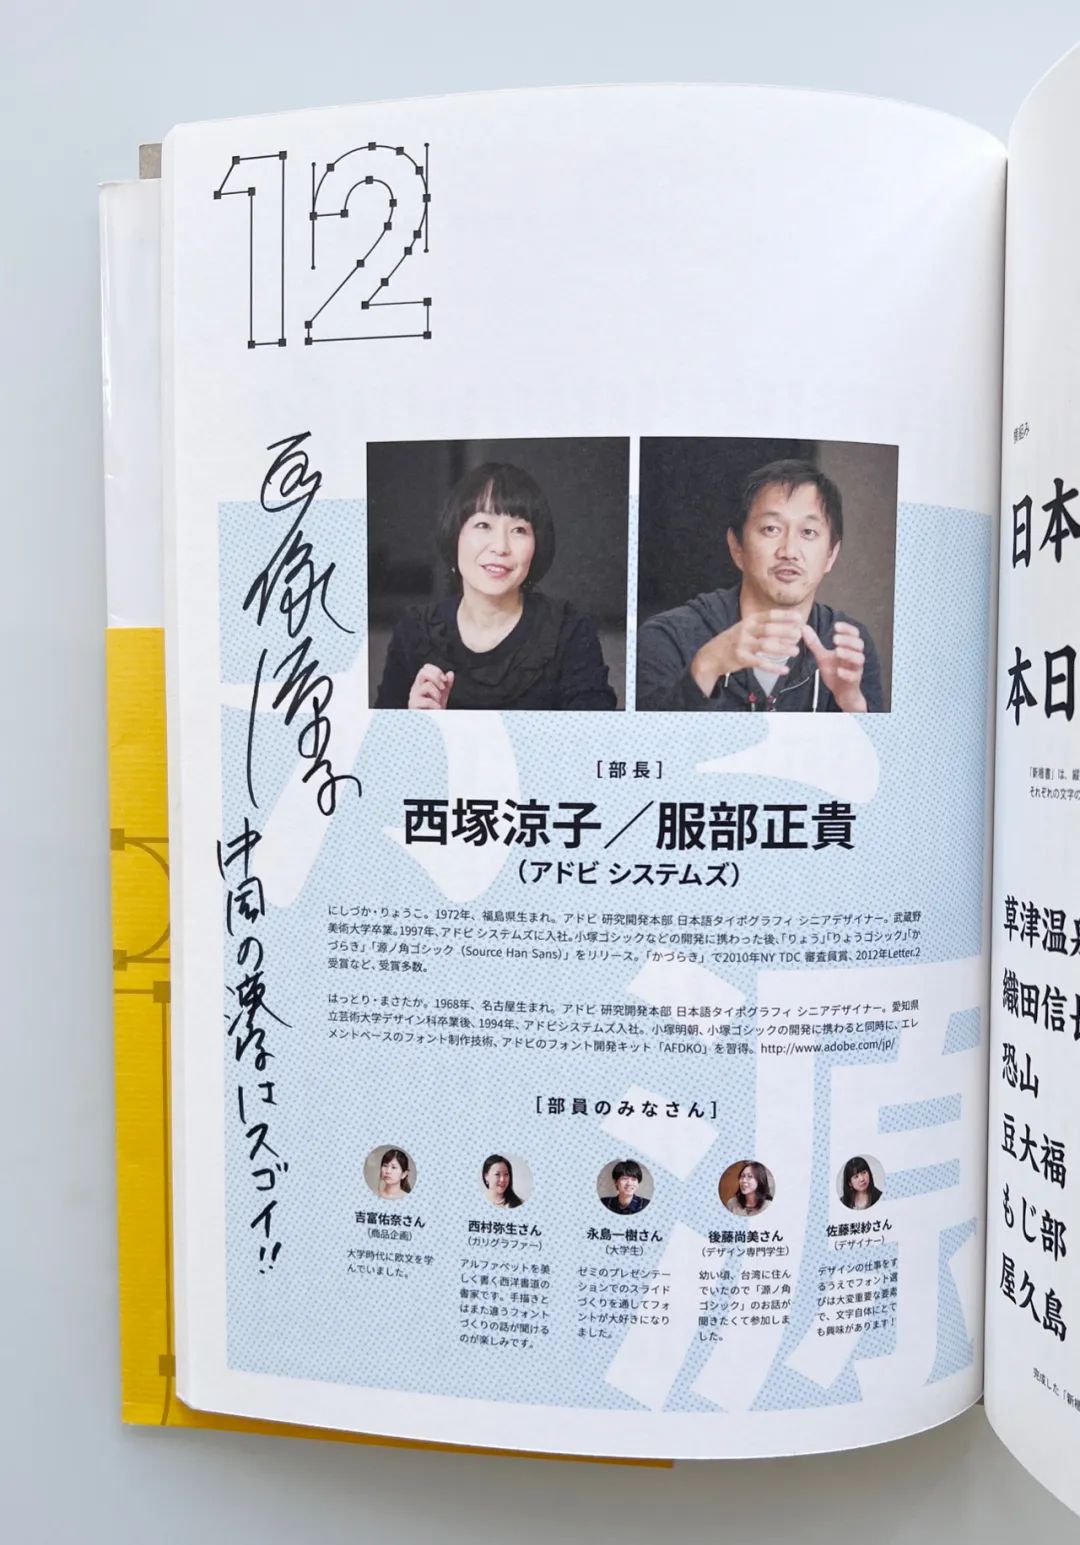 12
西塚涼子
中国の漢字はスゴイ!!
[部長]
西塚涼子／服部正貴
（アドビ システムズ）
にしづか・りょうこ。1972年、福島県生まれ。アドビ 研究開発本部 日本語タイポグラフィ シニアデザイナー。武蔵野
美術大学卒業。1997年、アドビ システムズに入社。小塚ゴシックなどの開発に携わった後、「りょう」「りょうゴシック」「か
づらき」「源ノ角ゴシック（Source Han Sans）」をリリース。「かづらき」で2010年NY TDC 審査員賞、2012年Letter.2
受賞など、受賞多数。
はっとり・まさたか。1968年、名古屋生まれ。アドビ 研究開発本部 日本語タイポグラフィ シニアデザイナー。愛知県
立芸術大学デザイン科卒業後、1994年、アドビシステムズ入社。小塚明朝、小塚ゴシックの開発に携わると同時に、エレ
メントベースのフォント制作技術、アドビのフォント開発キット「AFDKO」を習得。http://www.adobe.com/jp/
[部員のみなさん]
吉富佑奈さん
（商品企画）
大学時代に欧文を学
んでいました。
西村弥生さん
（カリグラファー）
アルファベットを美
しく書く西洋書道の
書家です。手描きと
はまた違うフォント
づくりの話が聞ける
のが楽しみです。
永島一樹さん
（大学生）
ゼミのプレゼンテー
ションでのスライド
づくりを通してフォ
ントが大好きになり
ました。
後藤尚美さん
（デザイン専門学生）
幼い頃、台湾に住ん
でいたので「源ノ角
ゴシック」のお話が
聞きたくて参加しま
した。
佐藤梨紗さん
（デザイナー）
デザインの仕事をす
るうえでフォント選
びは大変重要な要素
で、文字自体にとて
も興味があります！
源
横組み
日本
本日
「新楷書」は、縦
それぞれの文字の
草津温泉
織田信長
恐山
豆大福
もじ部
屋久島
完成した「新楷